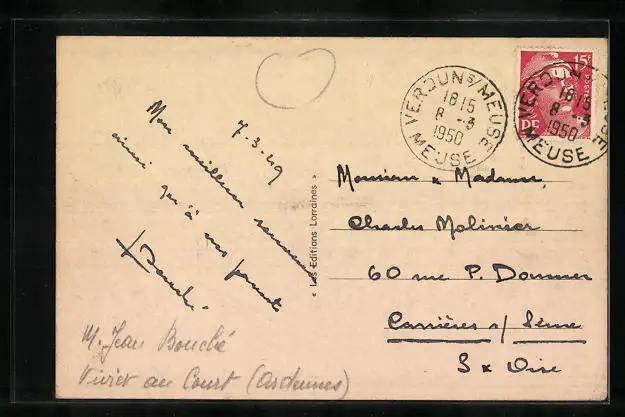 7-3-49
Mon meilleur souvenir
ainsi qu'à vos parents
JBouché
M. Jean Bouché
Vivier au Court (Ardennes)
« Les Editions Lorraines »
VERDUN S/MEUSE
18 15
8 -3
1950
MEUSE
15F
VERDUN S/MEUSE
18 15
8 -3
1950
MEUSE
Monsieur & Madame
Charles Molinier
60 rue P. Doumer
Carrières s/ Seine
S & Oise